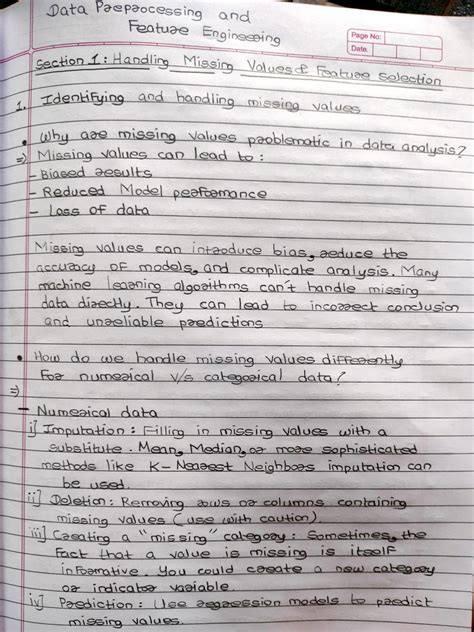 Data Preprocessing and
Feature Engineering
Page No:
Date
Section 1: Handling Missing Values & Feature Selection
1. Identifying and handling missing values
• Why are missing values problematic in data analysis?
⇒ Missing values can lead to:
- Biased results
- Reduced Model performance
- Loss of data
Missing values can introduce bias, reduce the
accuracy of models, and complicate analysis. Many
machine learning algorithms can't handle missing
data directly. They can lead to incorrect conclusion
and unreliable predictions
• How do we handle missing values differently
for numerical v/s categorical data?
⇒
- Numerical data
i] Imputation: Filling in missing values with a
substitute. Mean, Median, or more sophisticated
methods like K-Nearest Neighbors imputation can
be used.
ii] Deletion: Removing rows or columns containing
missing values (use with caution).
iii] Creating a "missing" category: Sometimes, the
fact that a value is missing is itself
informative. You could create a new category
or indicator variable.
iv] Prediction: Use regression models to predict
missing values.